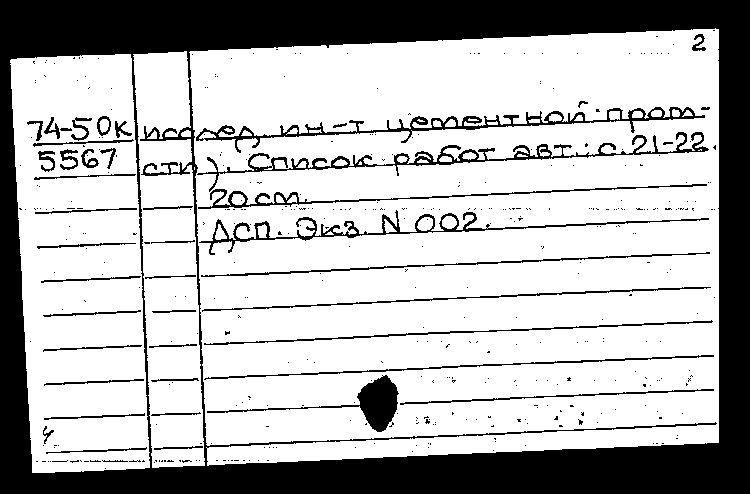 2
74-50к исслед. ин-т цементной пром-
5567 сти). Список работ авт.: с. 21-22.
20 см.
ДСП. Экз. N 002.